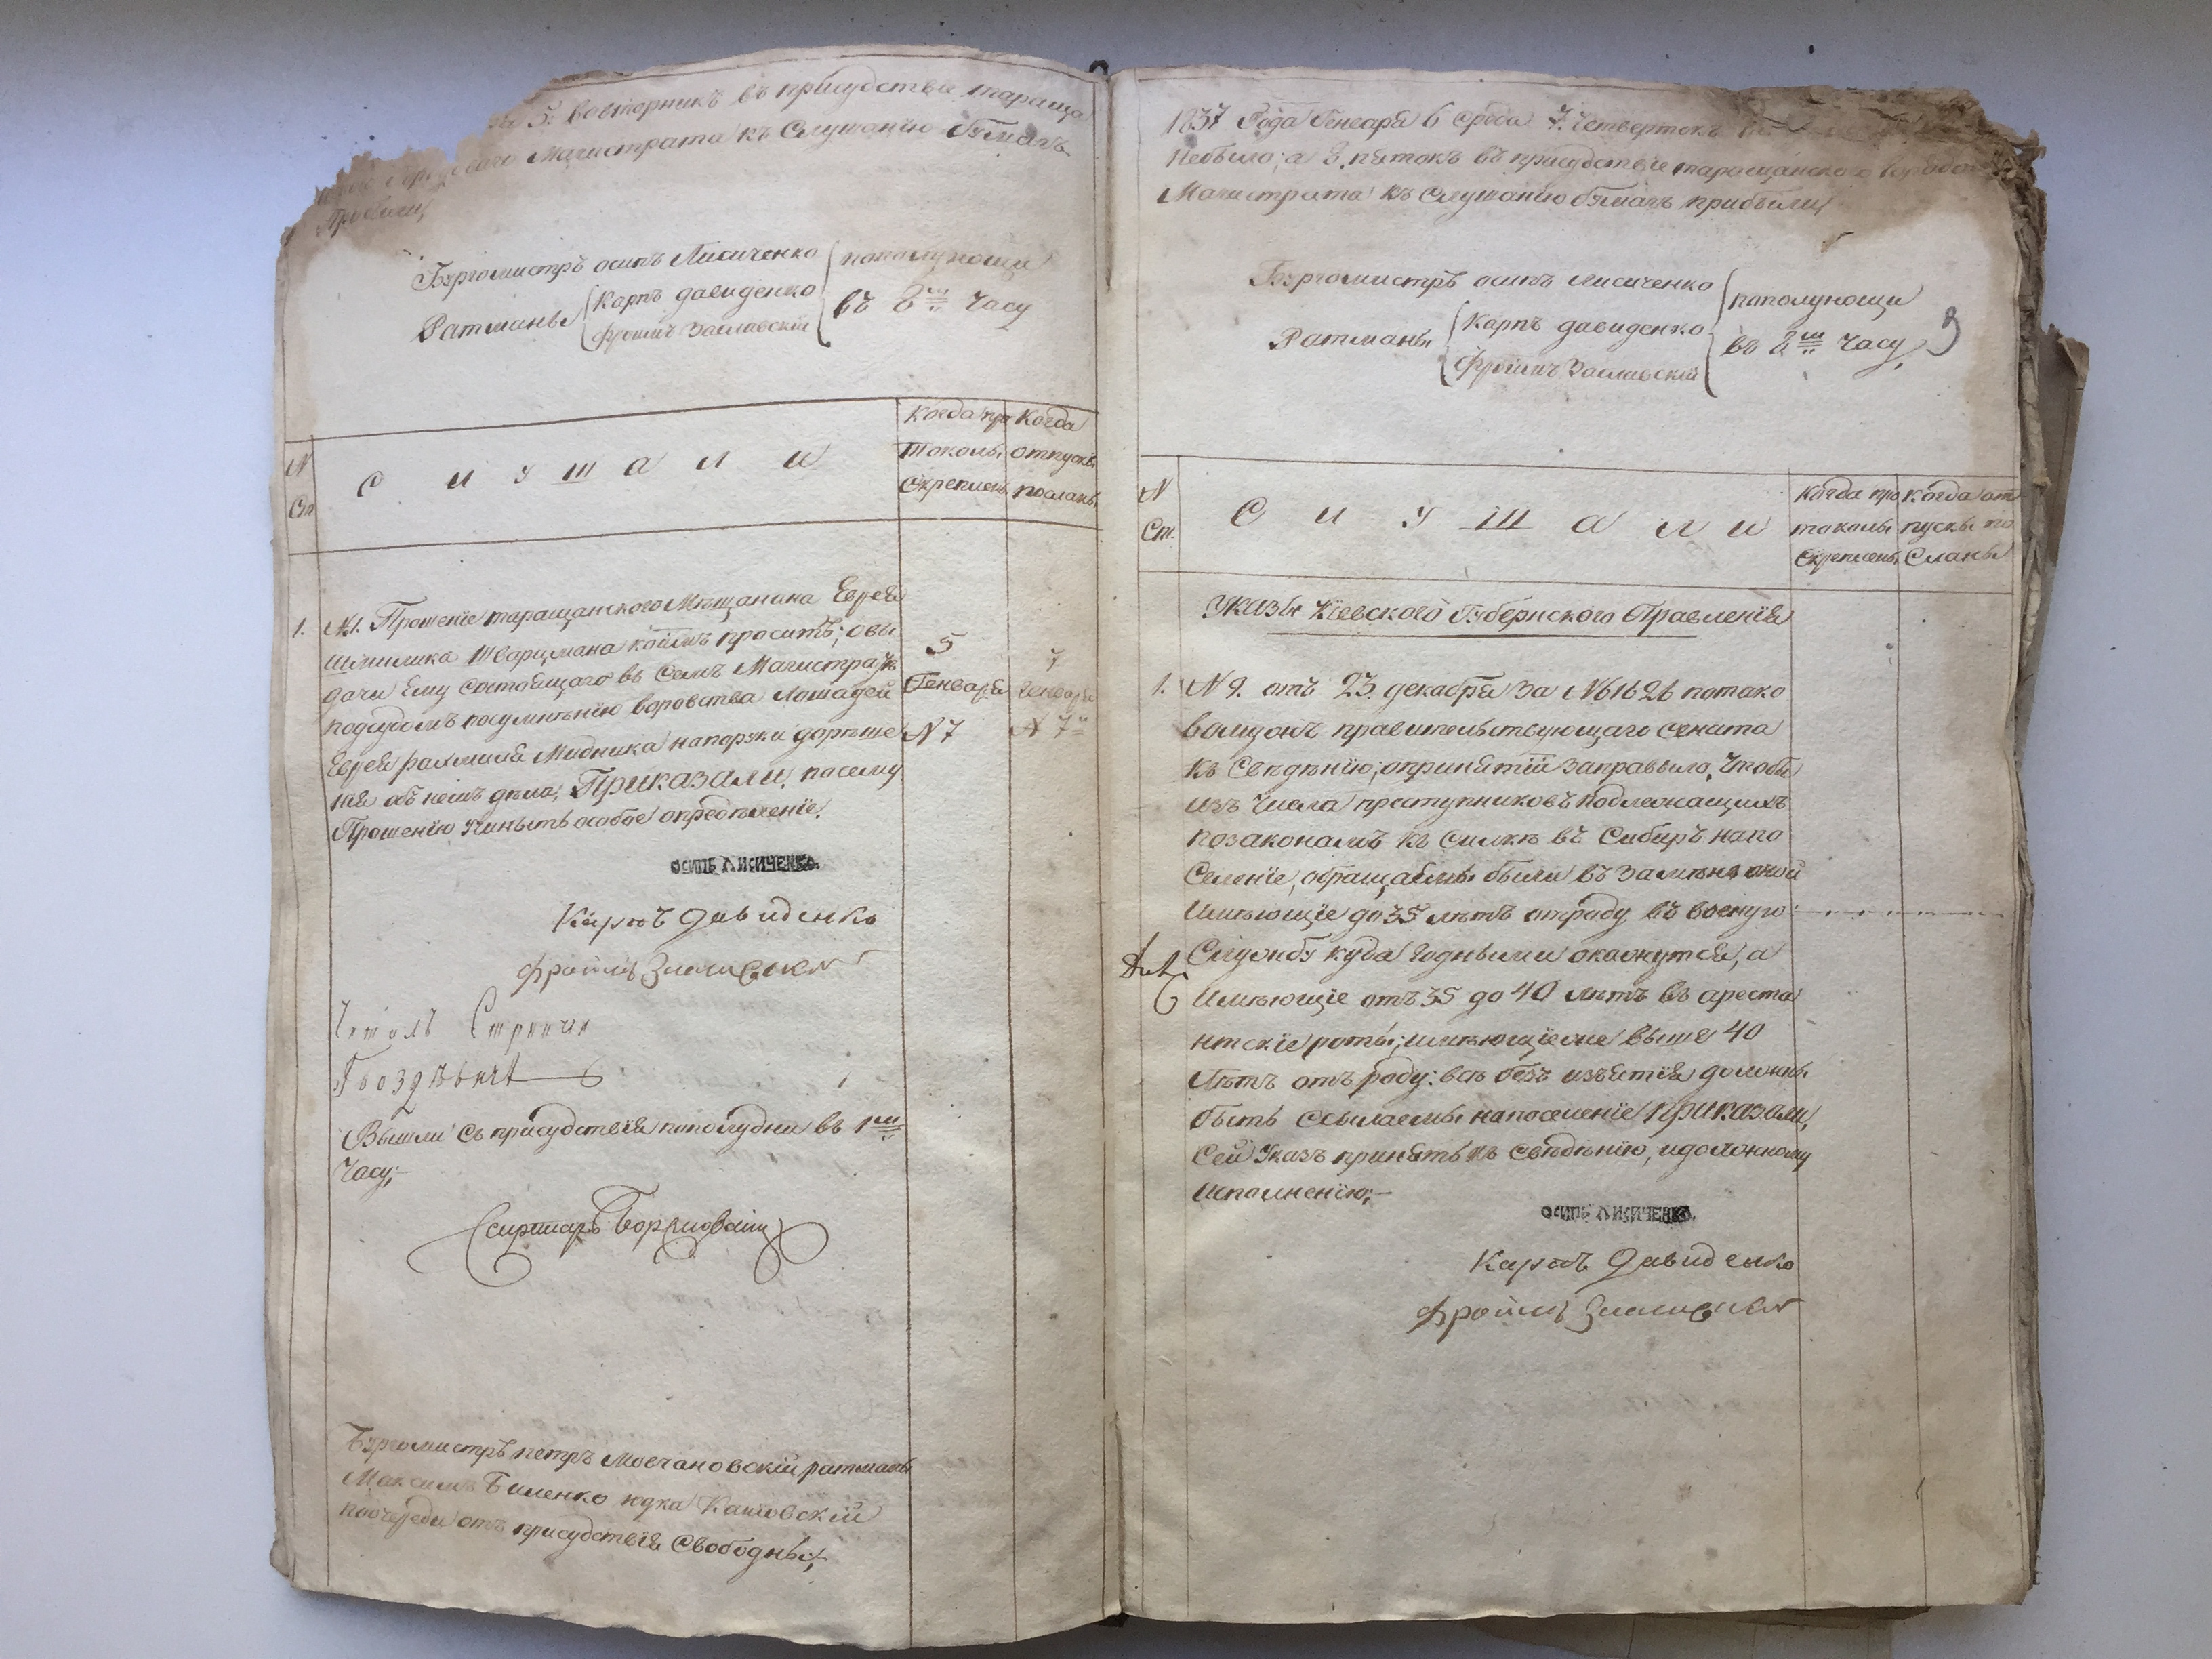 5. вовторникъ въ присудствіи тараща
Магистрата къ Слушанію бумагъ
Прибыли,
Бургомистръ осипъ Лисиченко
пополуночи
Ратманы
Карпъ давиденко
Фроимъ Заславскій
въ 8мъ часу
N
Ст
С л у ш а л и
когда про
токолы
скреплены
Когда
отпуски
посланы
1. №1. Прошеніе таращанского Мѣщанина Еврея
Шмилика Шварцмана коимъ проситъ; овы
дачи Ему состоящаго въ Семъ Магистратѣ
подсудомъ посумнѣнію воровства Лошадей
Еврея рахмиля Мидника напоруки дорѣше
нія объ немъ дѣла, Приказали, посему
Прошенію учинить особое определеніе.
5
Генваря
N 7
7
Генваря
N 7
ОСИПЪ ЛИСИЧЕНКО.
Карпъ Давиденко
Фроимъ Заславски
Читалъ Стряпчи
Гвоздѣвичъ
Вышли съ присудствія пополудни въ 1мъ
Часу;
Секретарь
Бургомистръ петръ Мосчановскій ратманы
Максимъ Биленко юдка Кашовскій
поочереди отъ присудствія Свободны;
1837 Года Генваря 6 среда 7. четвертокъ
Небыло; а 8. пятокъ въ присудствіе таращанского
Магистрата къ Слушанію бумагъ прибыли
Бургомистръ осипъ лисиченко
пополуночи
Ратманы
Карпъ давиденко
Фроимъ Заславскій
въ 8мъ часу,
N
Ст.
С л у ш а л и
когда про
токолы
скреплены
когда от
пуски по
сланы
Указы Кіевского Губернского Правленія
1. N 9. отъ 23. декабря за №61626 потако
вомуожъ правительствующаго сената
къ свѣдѣнію; опринятіи заправыло, чтобы
изъ числа преступниковъ подлежащихъ
позаконамъ къ силкѣ въ Сибиръ напо
Селеніе, обращаемы были въ замѣнъ оной
имѣющіе до 35 лѣтъ отроду въ военую
Службу куда годными окажутся, а
имѣющіе отъ 35 до 40 лѣтъ въ ареста
нтскіе роты; имѣющіеже выше 40
лѣтъ отъ роду: всѣ безъ изъятія должны
быть ссылаемы напоселеніе приказали,
сей Указъ принять къ свѣдѣнію, идолжному
исполненію;
ОСИПЪ ЛИСИЧЕНКО.
Карпъ Давиденко
Фроимъ Заславски